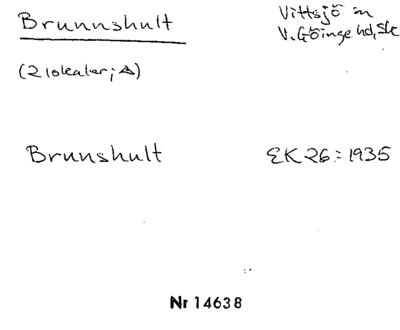 Brunnshult
Vittsjö sn
V. Göinge hd, Sk
(2 lokaler; △)
Brunshult
EK 26: 1935
Nr 14638